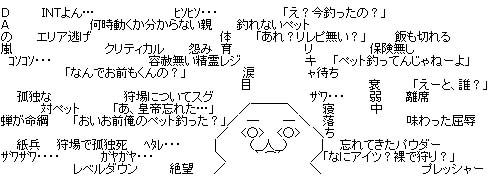 DINTよん…　ヒソヒソ…　「え？今釣ったの？」
A　何時動くか分からない親　釣れないペット
の　エリア逃げ　体　「あれ？リレピ無い？」　飯も切れる
嵐　クリティカル　怨み　育　リ　保険無し
コソコソ…　容赦無い精霊レジ　キ　「ペット釣ってんじゃねーよ」
「なんでお前もくんの？」　涙　ャ待ち
目　衰　「えーと、誰？」
孤独な　狩場についてスグ　サワ…　弱　離席
対ペット　「あ、皇帝忘れた…」　寝　中
蝉が命綱　「おいお前俺のペット釣った？」　落　味わった屈辱
ち
紙兵　狩場で孤独死　ﾍﾀﾚ…　忘れてきたパウダー
ザワザワ…　ガヤガヤ…　「なにアイツ？裸で狩り？」
レベルダウン　絶望　プレッシャー